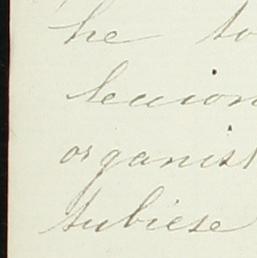 he to
leccion
organist
tubiese